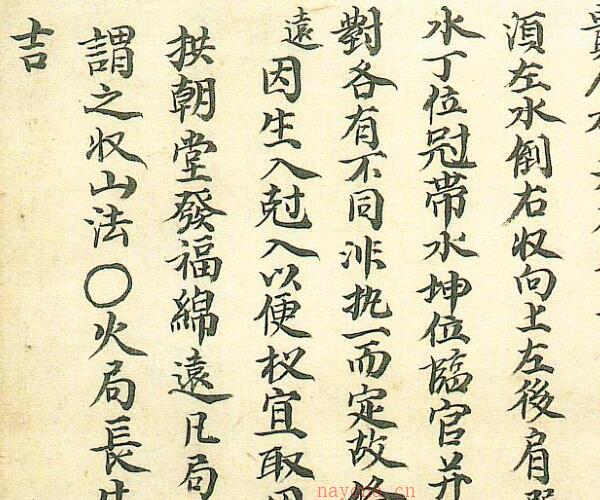 湏左水倒右収向上左後肩
水丁位冠帶水坤位臨官并
對各有不同非执一而定故
遠因生入尅入以便权宜取
拱朝堂發福綿遠凡局
謂之収山法〇火局長生
吉
nayona.cn